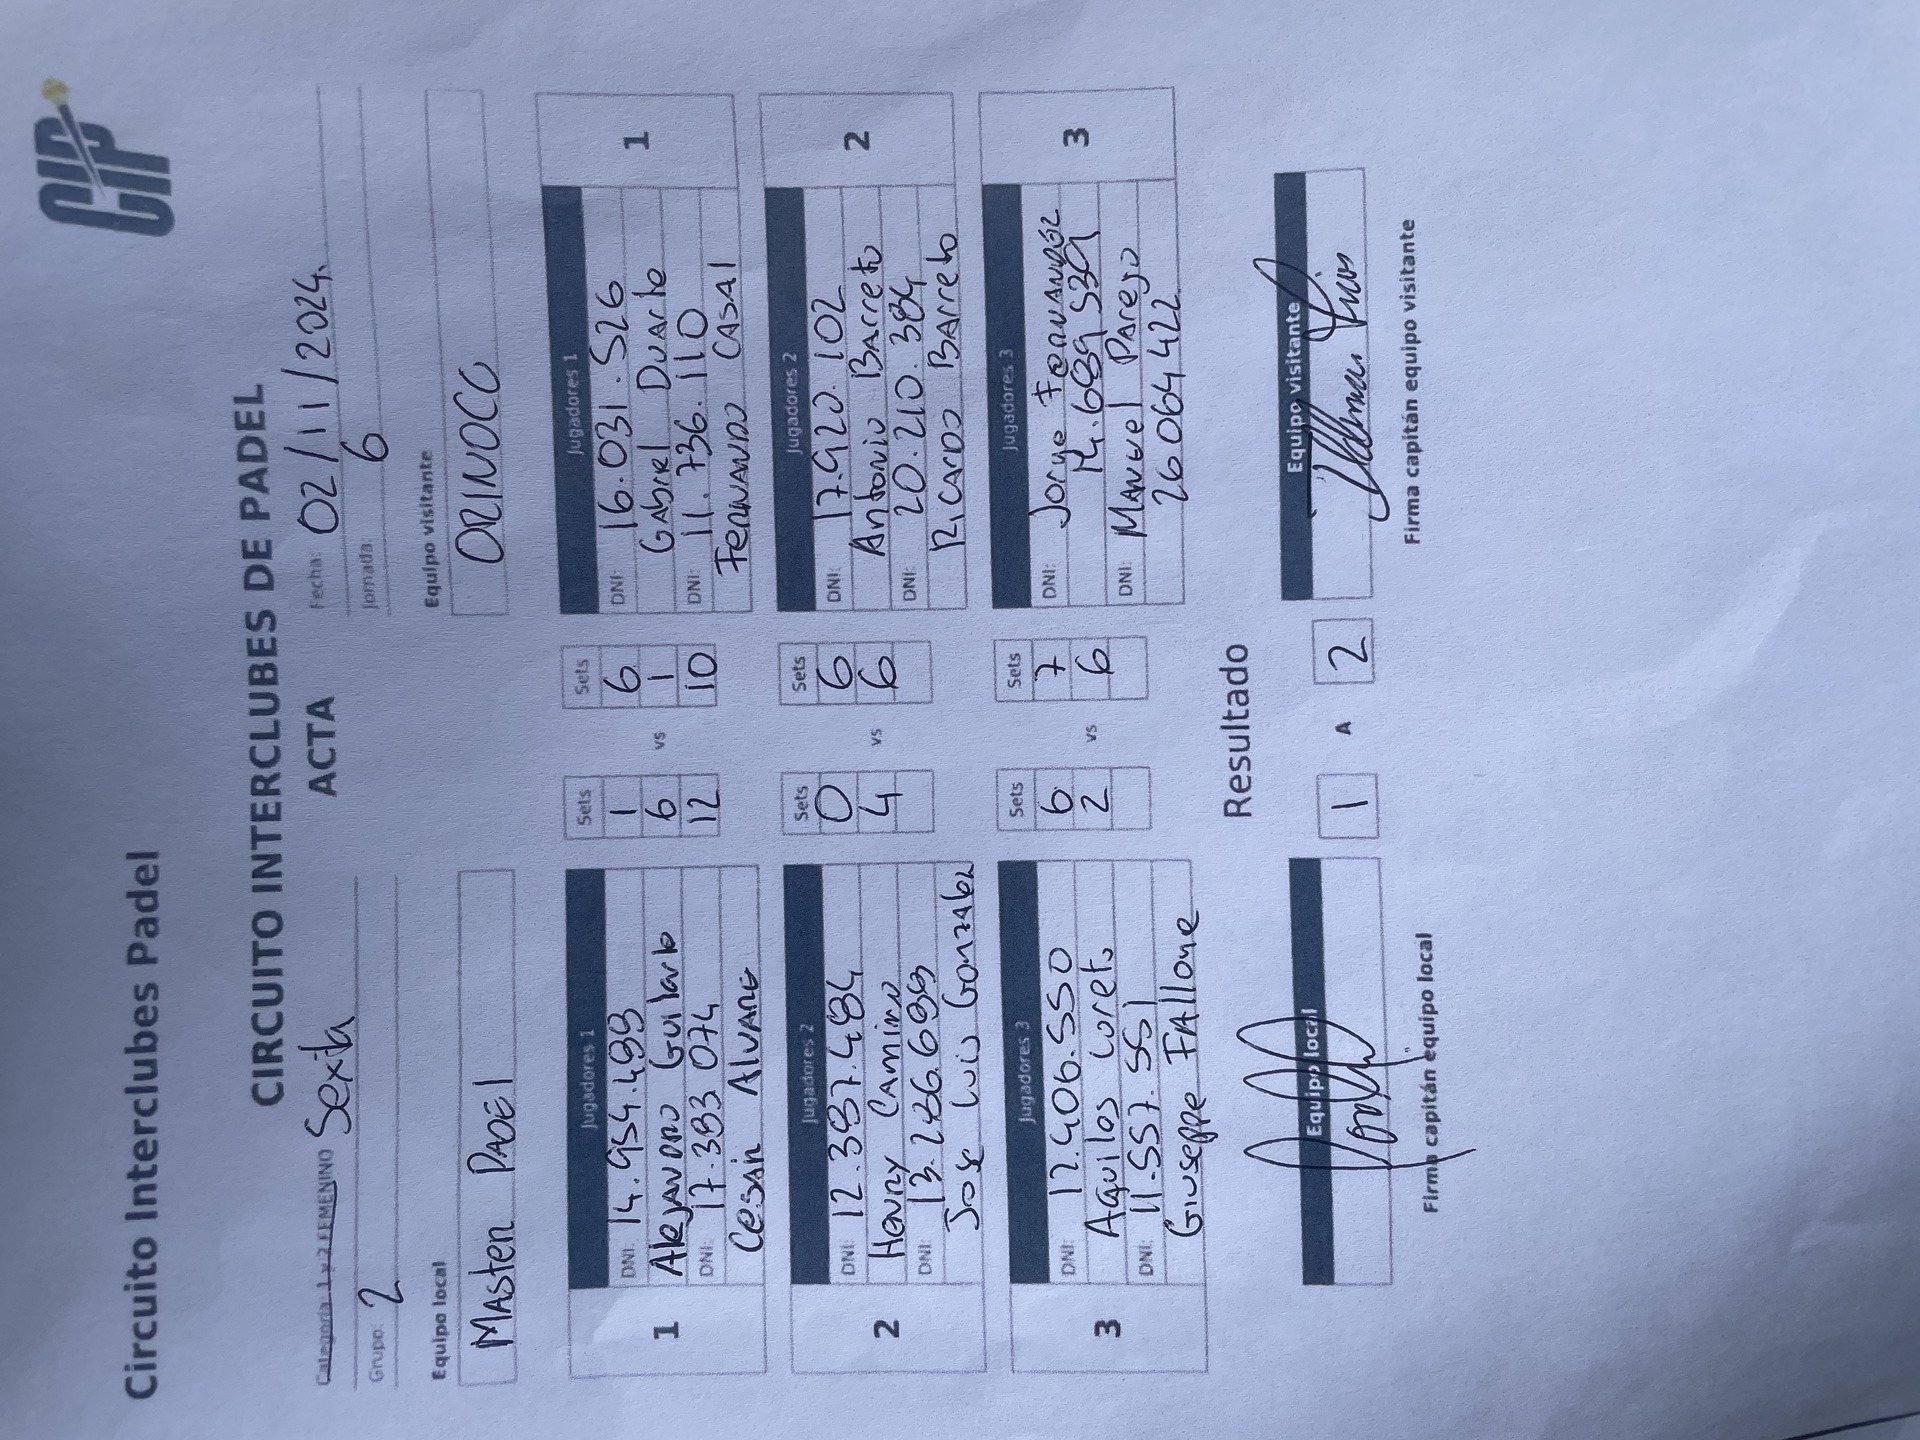 Circuito Interclubes Padel
CIP
CIRCUITO INTERCLUBES DE PADEL
ACTA
Categoría 1 y 2 FEMENINO Sexta
Fecha: 02/11/2024.
Grupo: 2
Jornada: 6
Equipo local
Equipo visitante
MASter PADEl
ORINOCO
Jugadores 1
Sets
Sets
Jugadores 1
DNI: 14.954.499
1
6
DNI: 16.031.526
Alejandro Guilarte
6
1
Gabriel Duarte
1
vs
1
DNI: 17.383 074
12
10
DNI: 11.736.110
Cesar Alvarez
Fernando CASAl
Jugadores 2
Sets
Sets
Jugadores 2
DNI: 12.397.484
0
6
DNI: 17.920.102
Henry Camino
4
6
Antonio Barreto
2
vs
2
DNI: 13.286.699
DNI: 20.210.384
Jose Luis Gonzalez
Ricardo Barreto
Jugadores 3
Sets
Sets
Jugadores 3
DNI: 12.406.550
6
7
DNI: Jorge Fernandez
Aquiles Loreto
2
6
14.689 539
3
vs
3
DNI: 11.557.551
DNI: Manuel Parejo
Giuseppe FAllone
26 064 422
Resultado
Equipo local
1 A 2
Equipo visitante
Firma capitán equipo local
Firma capitán equipo visitante